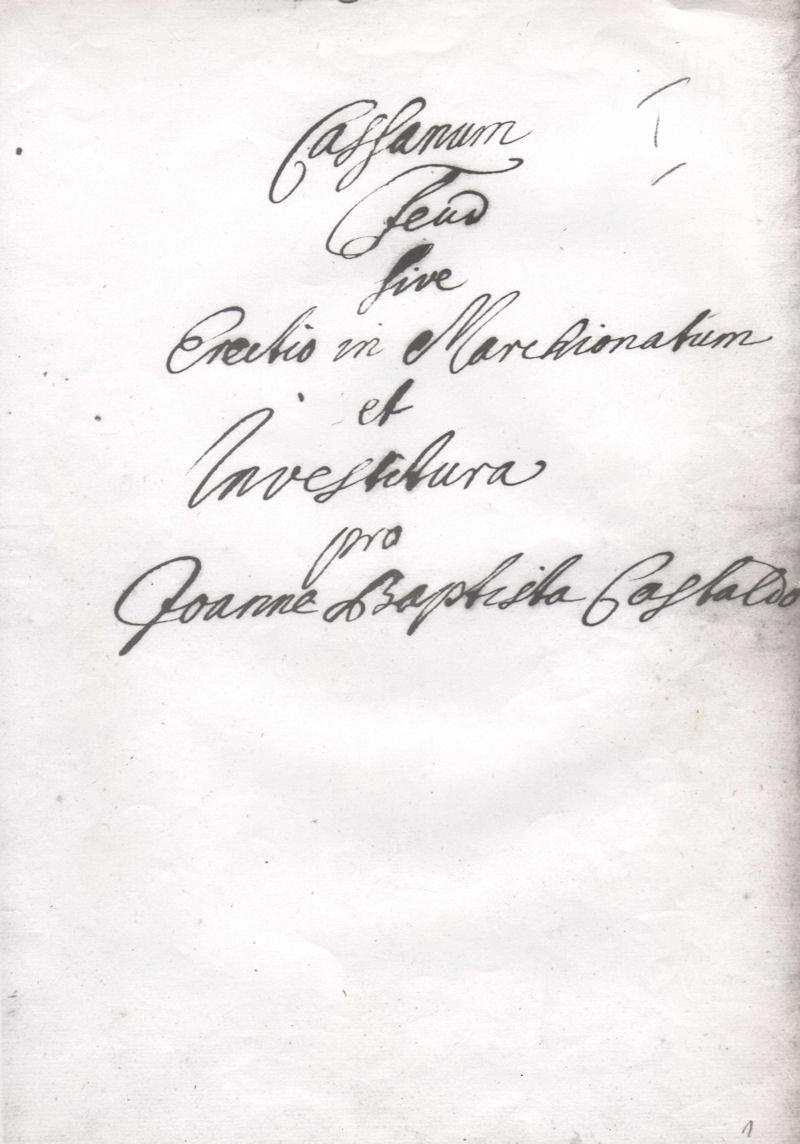 I
Cassanum
Feud
sive
Erectio in Marchionatum
et
Investitura
pro
Joanne Baptista Castaldo
1